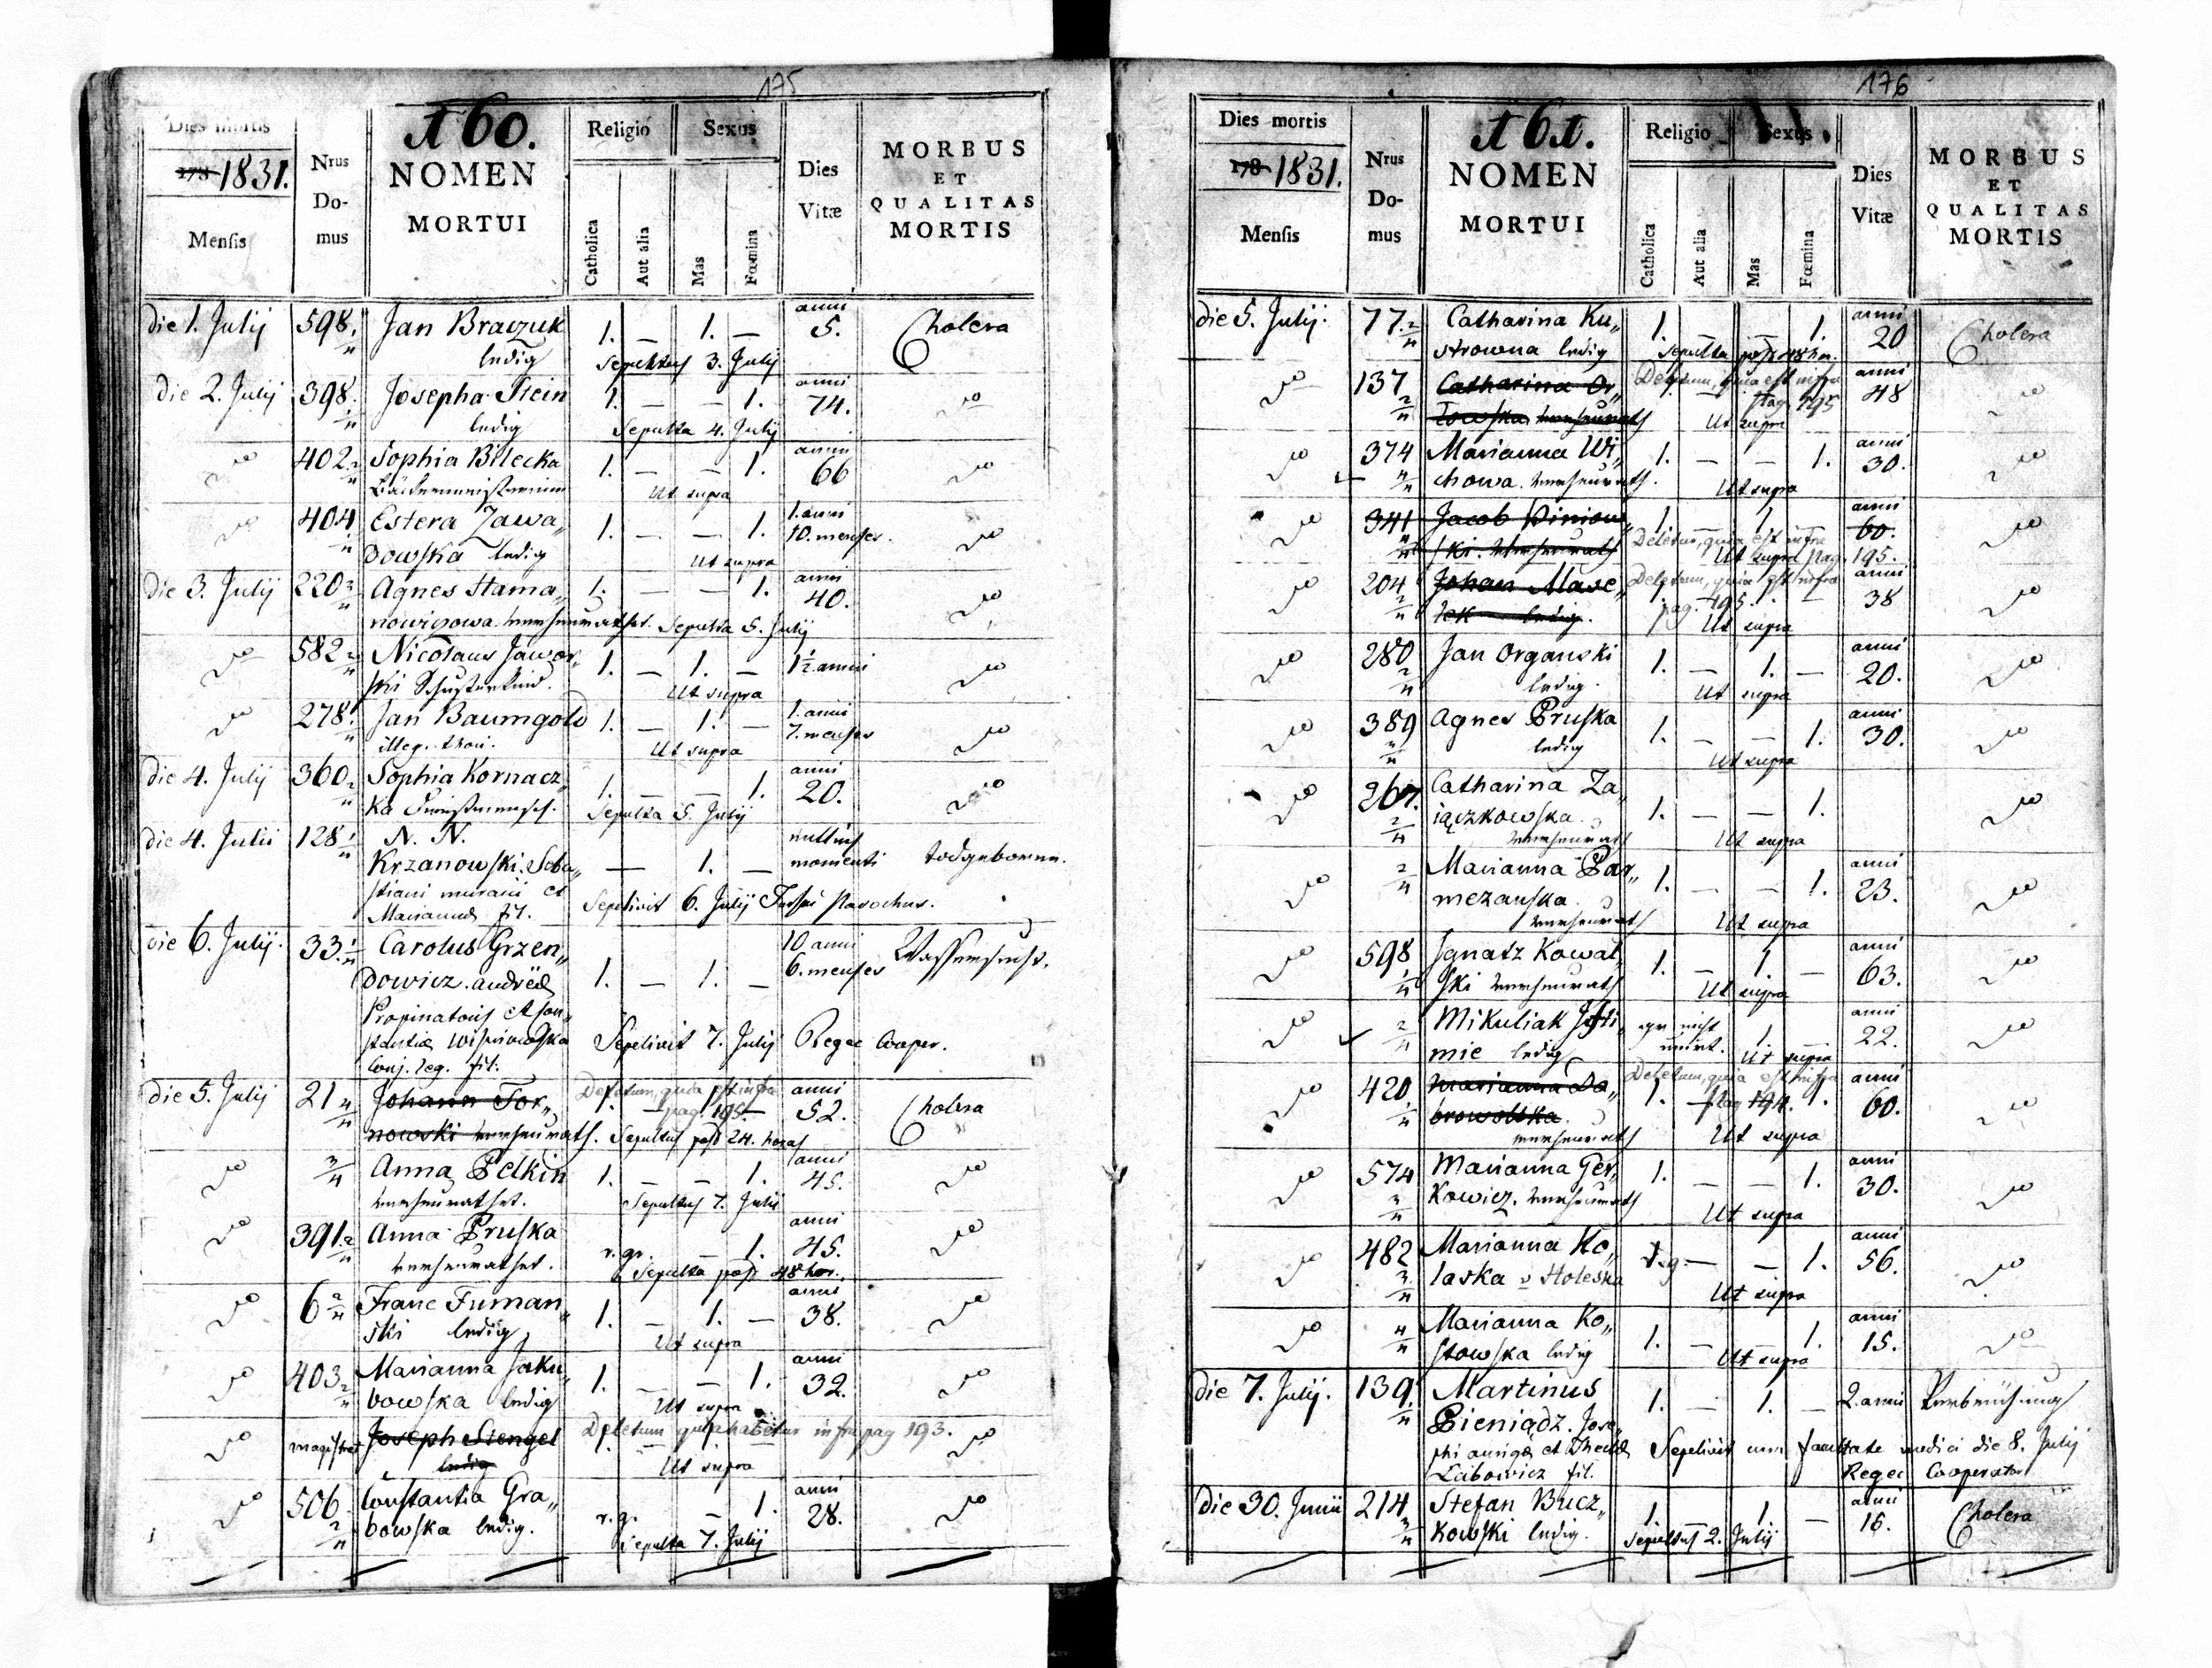 175
160.
Dies mortis
178 1831.
Mensis
Nrus
Do-
mus
NOMEN
MORTUI
Religio
Catholica
Aut alia
Sexus
Mas
Fœmina
Dies
Vitæ
MORBUS
ET
QUALITAS
MORTIS
die 1. Julij 598. Jan Braczuk 1. — 1. — anni 5. Cholera
ledig Sepultus 3. Julij
die 2. Julij 398. Josepha Stein 1. — — 1. anni 74. do
ledig Sepulta 4. Julij
do 402. Sophia Bilecka 1. — — 1. anni 66 do
Bäckermeisterinn Ut supra
do 404 Estera Zawa„ 1. — — 1. 1. anni 10. menses. do
dowska ledig Ut supra
die 3. Julij 220 Agnes Stama„ 1. — — 1. anni 40. do
nowiczowa. verheurathet. Sepulta 5. Julij
do 582 Nicolaus Jawor„ 1. — 1. — 1½ anni do
ski Schusterkind. Ut supra
do 278. Jan Baumgold 1. — 1. — 1. anni 7. menses do
illeg. thori. Ut supra
die 4. Julij 360. Sophia Kornacz„ 1. — — 1. anni 20. do
ka Sepulta 5. Julij
die 4. Julii 128 N. N. — 1. — nullius momenti todgeboren.
Krzanowski. Seba„
stiani murarii et
Mariannæ fil. Sepelivit 6. Julij Parochus.
die 6. Julij. 33. Carolus Grzen„ 1. — 1. — 10 anni 6. menses Wassersucht.
dowicz. Andreæ
Propinatoris et Con„
stantiæ Wisniowska
conj. leg. fil. Sepelivit 7. Julij Regec Cooper.
die 5. Julij 21 Johann Tor„ Deletum, quia est infra pag. 195 anni 52. Cholera
nowski verheurath. Sepultus post 24. horas
do Anna Pelkin 1. — — 1. anni 45. do
verheurathet. Sepultus 7. Julii
do 391. Anna Pruska r. gr. — 1. anni 45. do
verheurathet. Sepulta post 48 hor.
do 6 Franc Fuman„ 1. — 1. — anni 38. do
ski ledig Ut supra
do 403. Marianna Jaku„ 1. — — 1. anni 32. do
bowska ledig Ut supra
do magistrat Joseph Stengel Deletum quia habetur infra pag 193. do
ledig Ut supra
do 506 Constantia Gra„ r. g. — 1. anni 28. do
bowska ledig. Sepulta 7. Julij
176
161.
Dies mortis
178 1831.
Mensis
Nrus
Do-
mus
NOMEN
MORTUI
Religio
Catholica
Aut alia
Sexus
Mas
Fœmina
Dies
Vitæ
MORBUS
ET
QUALITAS
MORTIS
die 5. Julij. 77. Catharina Ku„ 1. — — 1. anni 20 Cholera
strowna ledig Sepulta post 48 hor.
do 137 Catharina Or„ Deletum, quia est infra pag 195 anni 48 do
lowska verheurath Ut supra
do 374 Marianna Wi„ 1. — — 1. anni 30. do
chowa. verheurath. Ut supra
do 341 Jacob Piniow„ 1 — 1 anni 60. do
ski. verheurath Deletur, quia est infra Ut supra pag. 195.
do 204 Johan Mase„ Deletum, quia est infra pag. 195. anni 38 do
lek ledig. Ut supra
do 280 Jan Organski 1. — 1. — anni 20. do
ledig. Ut supra
do 389 Agnes Pruska 1. — — 1. anni 30. do
ledig Ut supra
do 267. Catharina Za„ 1. — — 1. do
iączkowska.
verheurath Ut supra
do Marianna Par„ 1. — — 1. anni 23. do
mezanska.
verheurath Ut supra
do 598 Ignatz Kowal„ 1. — 1. — anni 63. do
ski verheurath Ut supra
do Mikuliak Josti„ gr. nicht unirt. 1. — anni 22. do
mie ledig Ut supra
do 420 Marianna Do„ Deletum, quia est infra pag 194. 1. anni 60. do
browolska.
verheurath Ut supra
do 574 Marianna Ger„ 1. — — 1. anni 30. do
kowicz. verheurath Ut supra
do 482 Marianna Ko„ r. g. — — 1. anni 56. do
laska v Holeska Ut supra
do Marianna Ko„ 1. — — 1. anni 15. do
stowska ledig Ut supra
die 7. Julij. 139. Martinus 1. — 1. — 2. anni Verbrühung
Pieniądz. Jose„
phi aurigæ et Theclæ Sepelivit cum facultate medici die 8. Julij
Labowicz fil. Regec Cooperator
die 30. Junii 214 Stefan Bucz„ 1. — 1 — anni 16. Cholera
kowski ledig. Sepultus 2. Julij